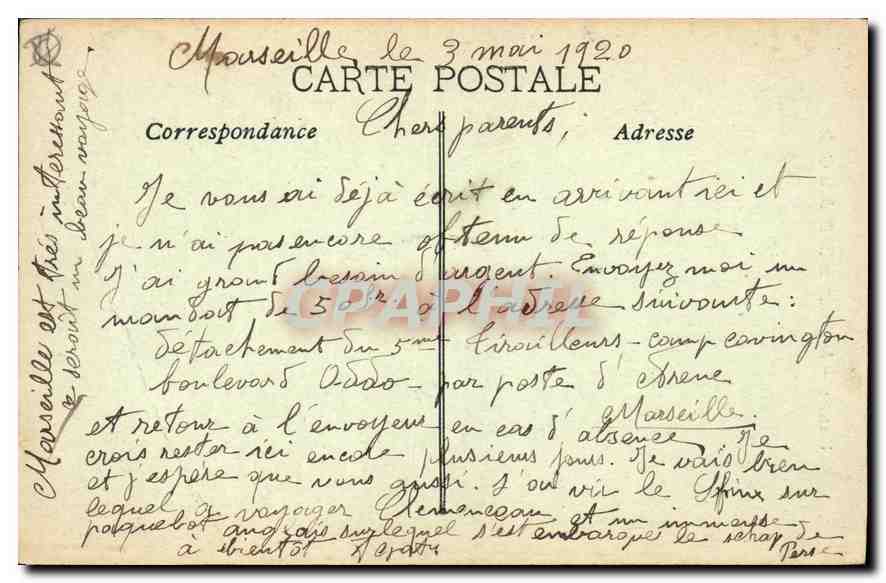 Marseille, le 3 mai 1920
CARTE POSTALE
Correspondance
Adresse
Chers parents,
Je vous ai déjà écrit en arrivant ici et
je n'ai pas encore obtenu de réponse
J'ai grand besoin d'argent. Envoyez moi un
mandat de 50 frs à l'adresse suivante:
détachement du 5me Tirailleurs - camp covington
boulevard Oddo - par poste d'Arenc
Marseille.
et retour à l'envoyeur en cas d'absence. Je
crois rester ici encore plusieurs jours. Je vais bien
et j'espère que vous aussi. J'ai vu le Sfinx sur
lequel a voyager Clemenceau et un immense
paquebot anglais sur lequel s'est embarqué le schah de
Perse
à bientôt
Marseille est très intéressant
ce serait un beau voyage.
CPAPHIL